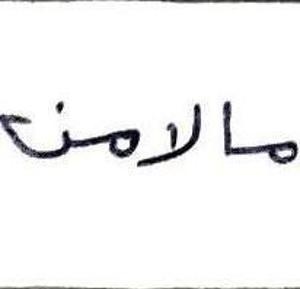 مالامن